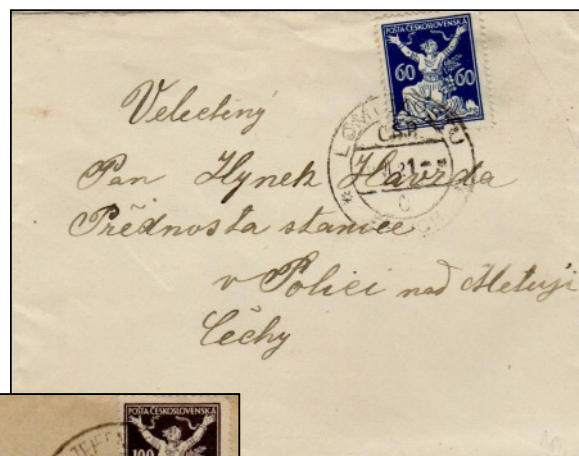 POŠTA ČESKOSLOVENSKÁ
60 60
Velectěný
Pan Hynek Havrda
Přednosta stanice
v Polici nad Metují
Čechy
Č.S.R.
POŠTA ČESKOSLOVENSKÁ
100